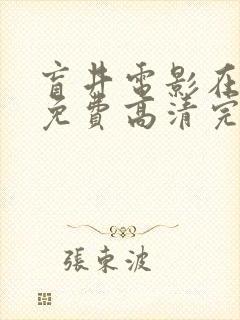 盲井電影在
免費高清完
張東波